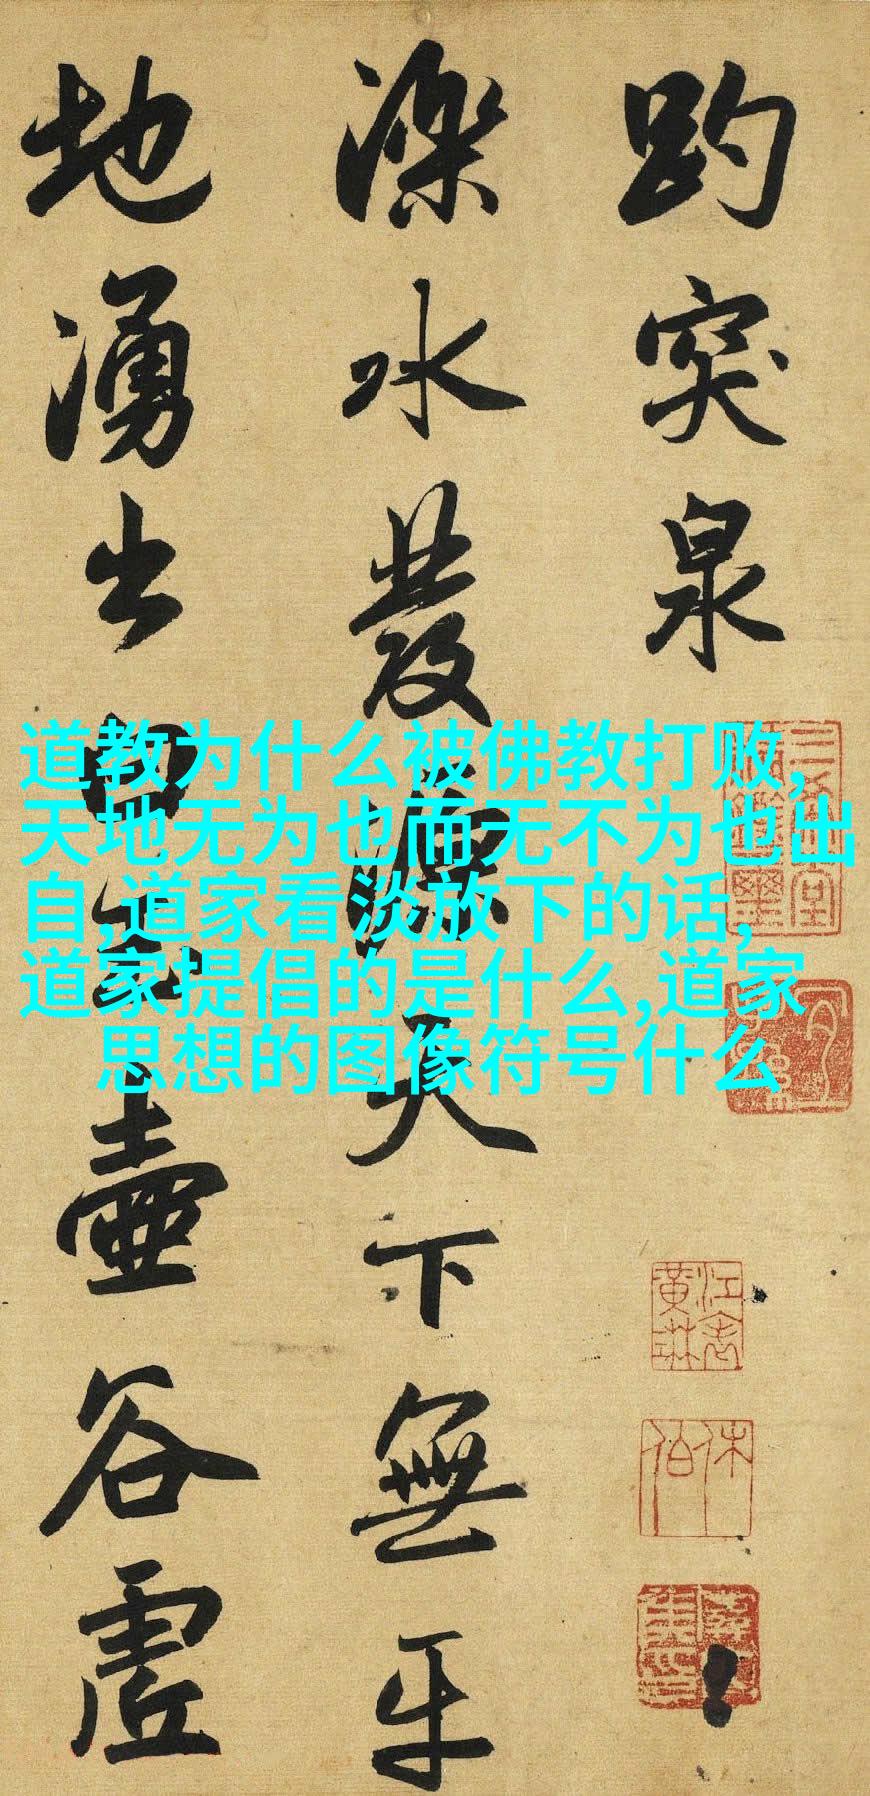 趵突泉
濼水發源天下無
平地湧出白玉壺
谷虛
道教为什么被佛教打败,
天地无为也而无不为也出
自,道家看淡放下的话,
道家提倡的是什么,道家
思想的图像符号什么